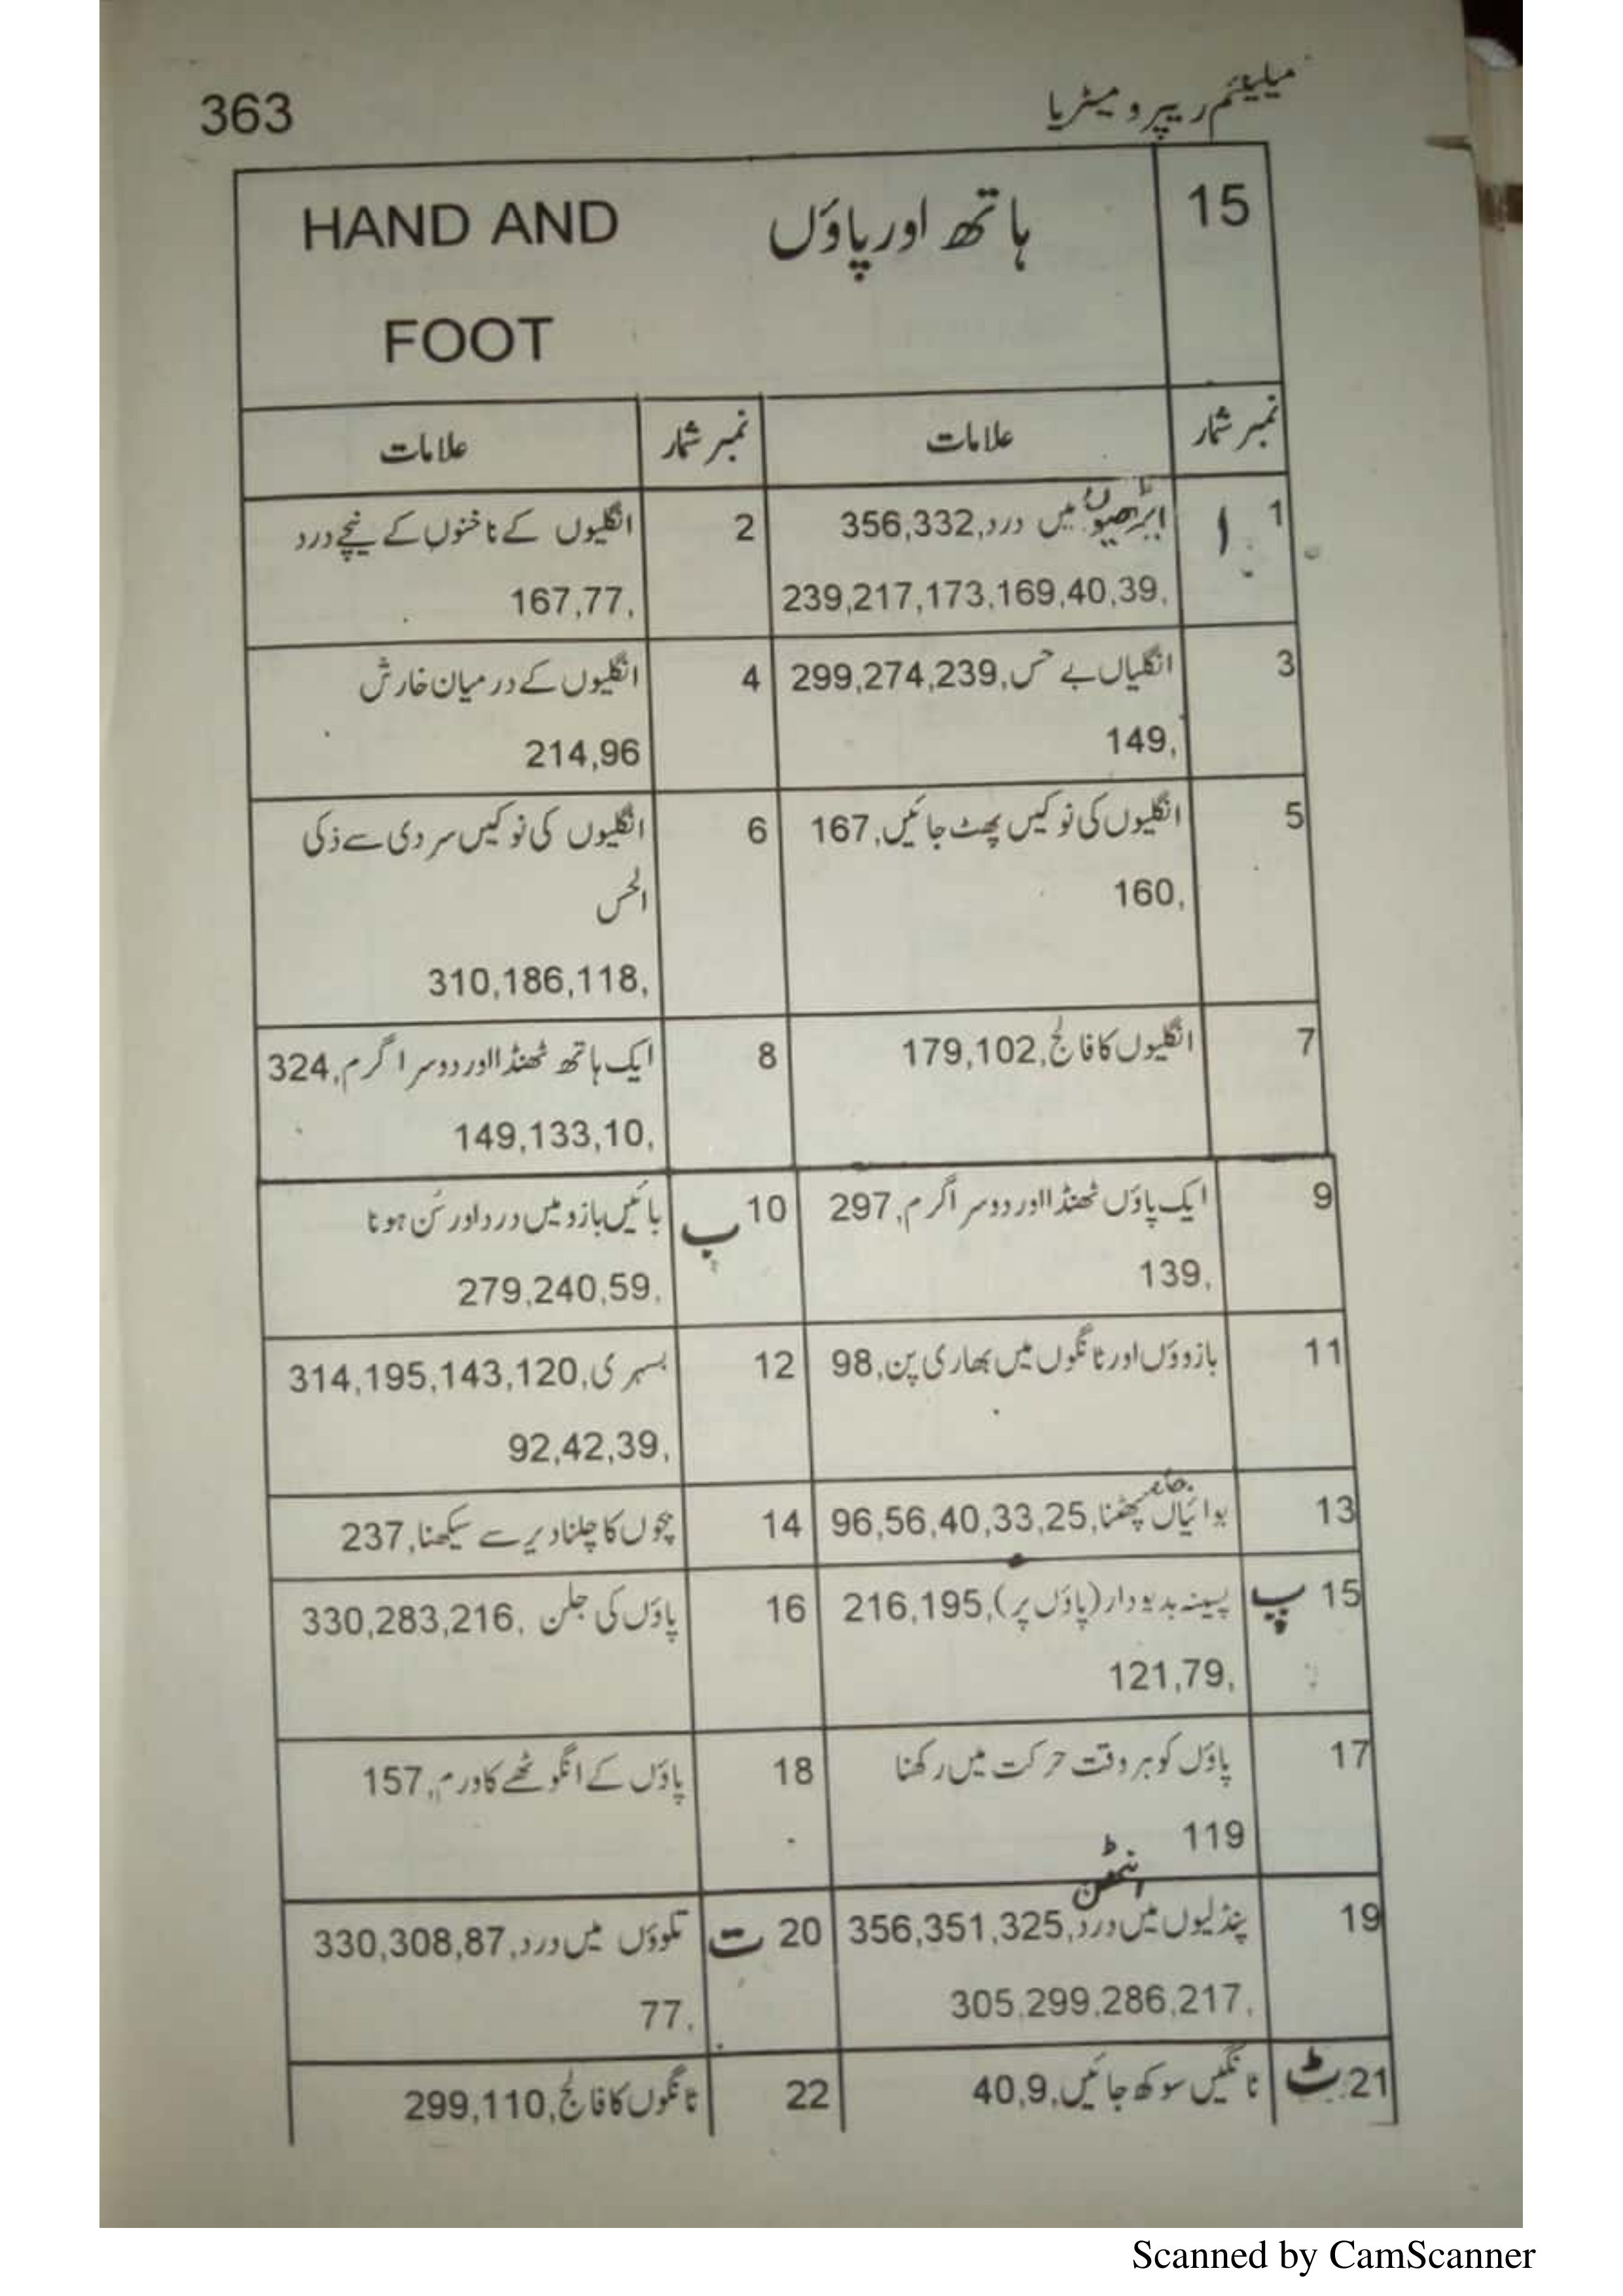 363
میلینیم ریپرومیٹریا
15
ہاتھ اور پاؤں
HAND AND
FOOT
نمبر شمار
علامات
نمبر شمار
علامات
1
ا
ایڑھیوں میں درد,356,332
239,217,173,169,40,39,
2
انگلیوں کے ناخنوں کے نیچے درد
167,77,
3
انگلیاں بے حس,299,274,239
149,
4
انگلیوں کے درمیان خارش
214,96
5
انگلیوں کی نوکیں پھٹ جائیں,167
160,
6
انگلیوں کی نوکیں سردی سے ذکی
الحس
310,186,118,
7
انگلیوں کا فالج,179,102
8
ایک ہاتھ ٹھنڈا اور دوسرا گرم,324
149,133,10,
9
ایک پاؤں ٹھنڈا اور دوسرا گرم,297
139,
10
ب
بائیں بازو میں درد اور سُن ہونا
279,240,59,
11
بازوؤں اور ٹانگوں میں بھاری پن,98
12
بسہری,314,195,143,120
92,42,39,
13
بوائیاں پھٹنا,96,56,40,33,25
14
بچوں کا چلنا دیر سے سیکھنا,237
15
پ
پسینہ بدبودار (پاؤں پر),216,195
121,79,
16
پاؤں کی جلن ,330,283,216
17
پاؤں کو ہر وقت حرکت میں رکھنا
119
18
پاؤں کے انگوٹھے کا ورم,157
19
اینٹھن
پنڈلیوں میں درد,356,351,325
305,299,286,217,
20
ت
تلوؤں میں درد,330,308,87
77,
21
ٹ
ٹانگیں سوکھ جائیں,40,9
22
ٹانگوں کا فالج,299,110
Scanned by CamScanner